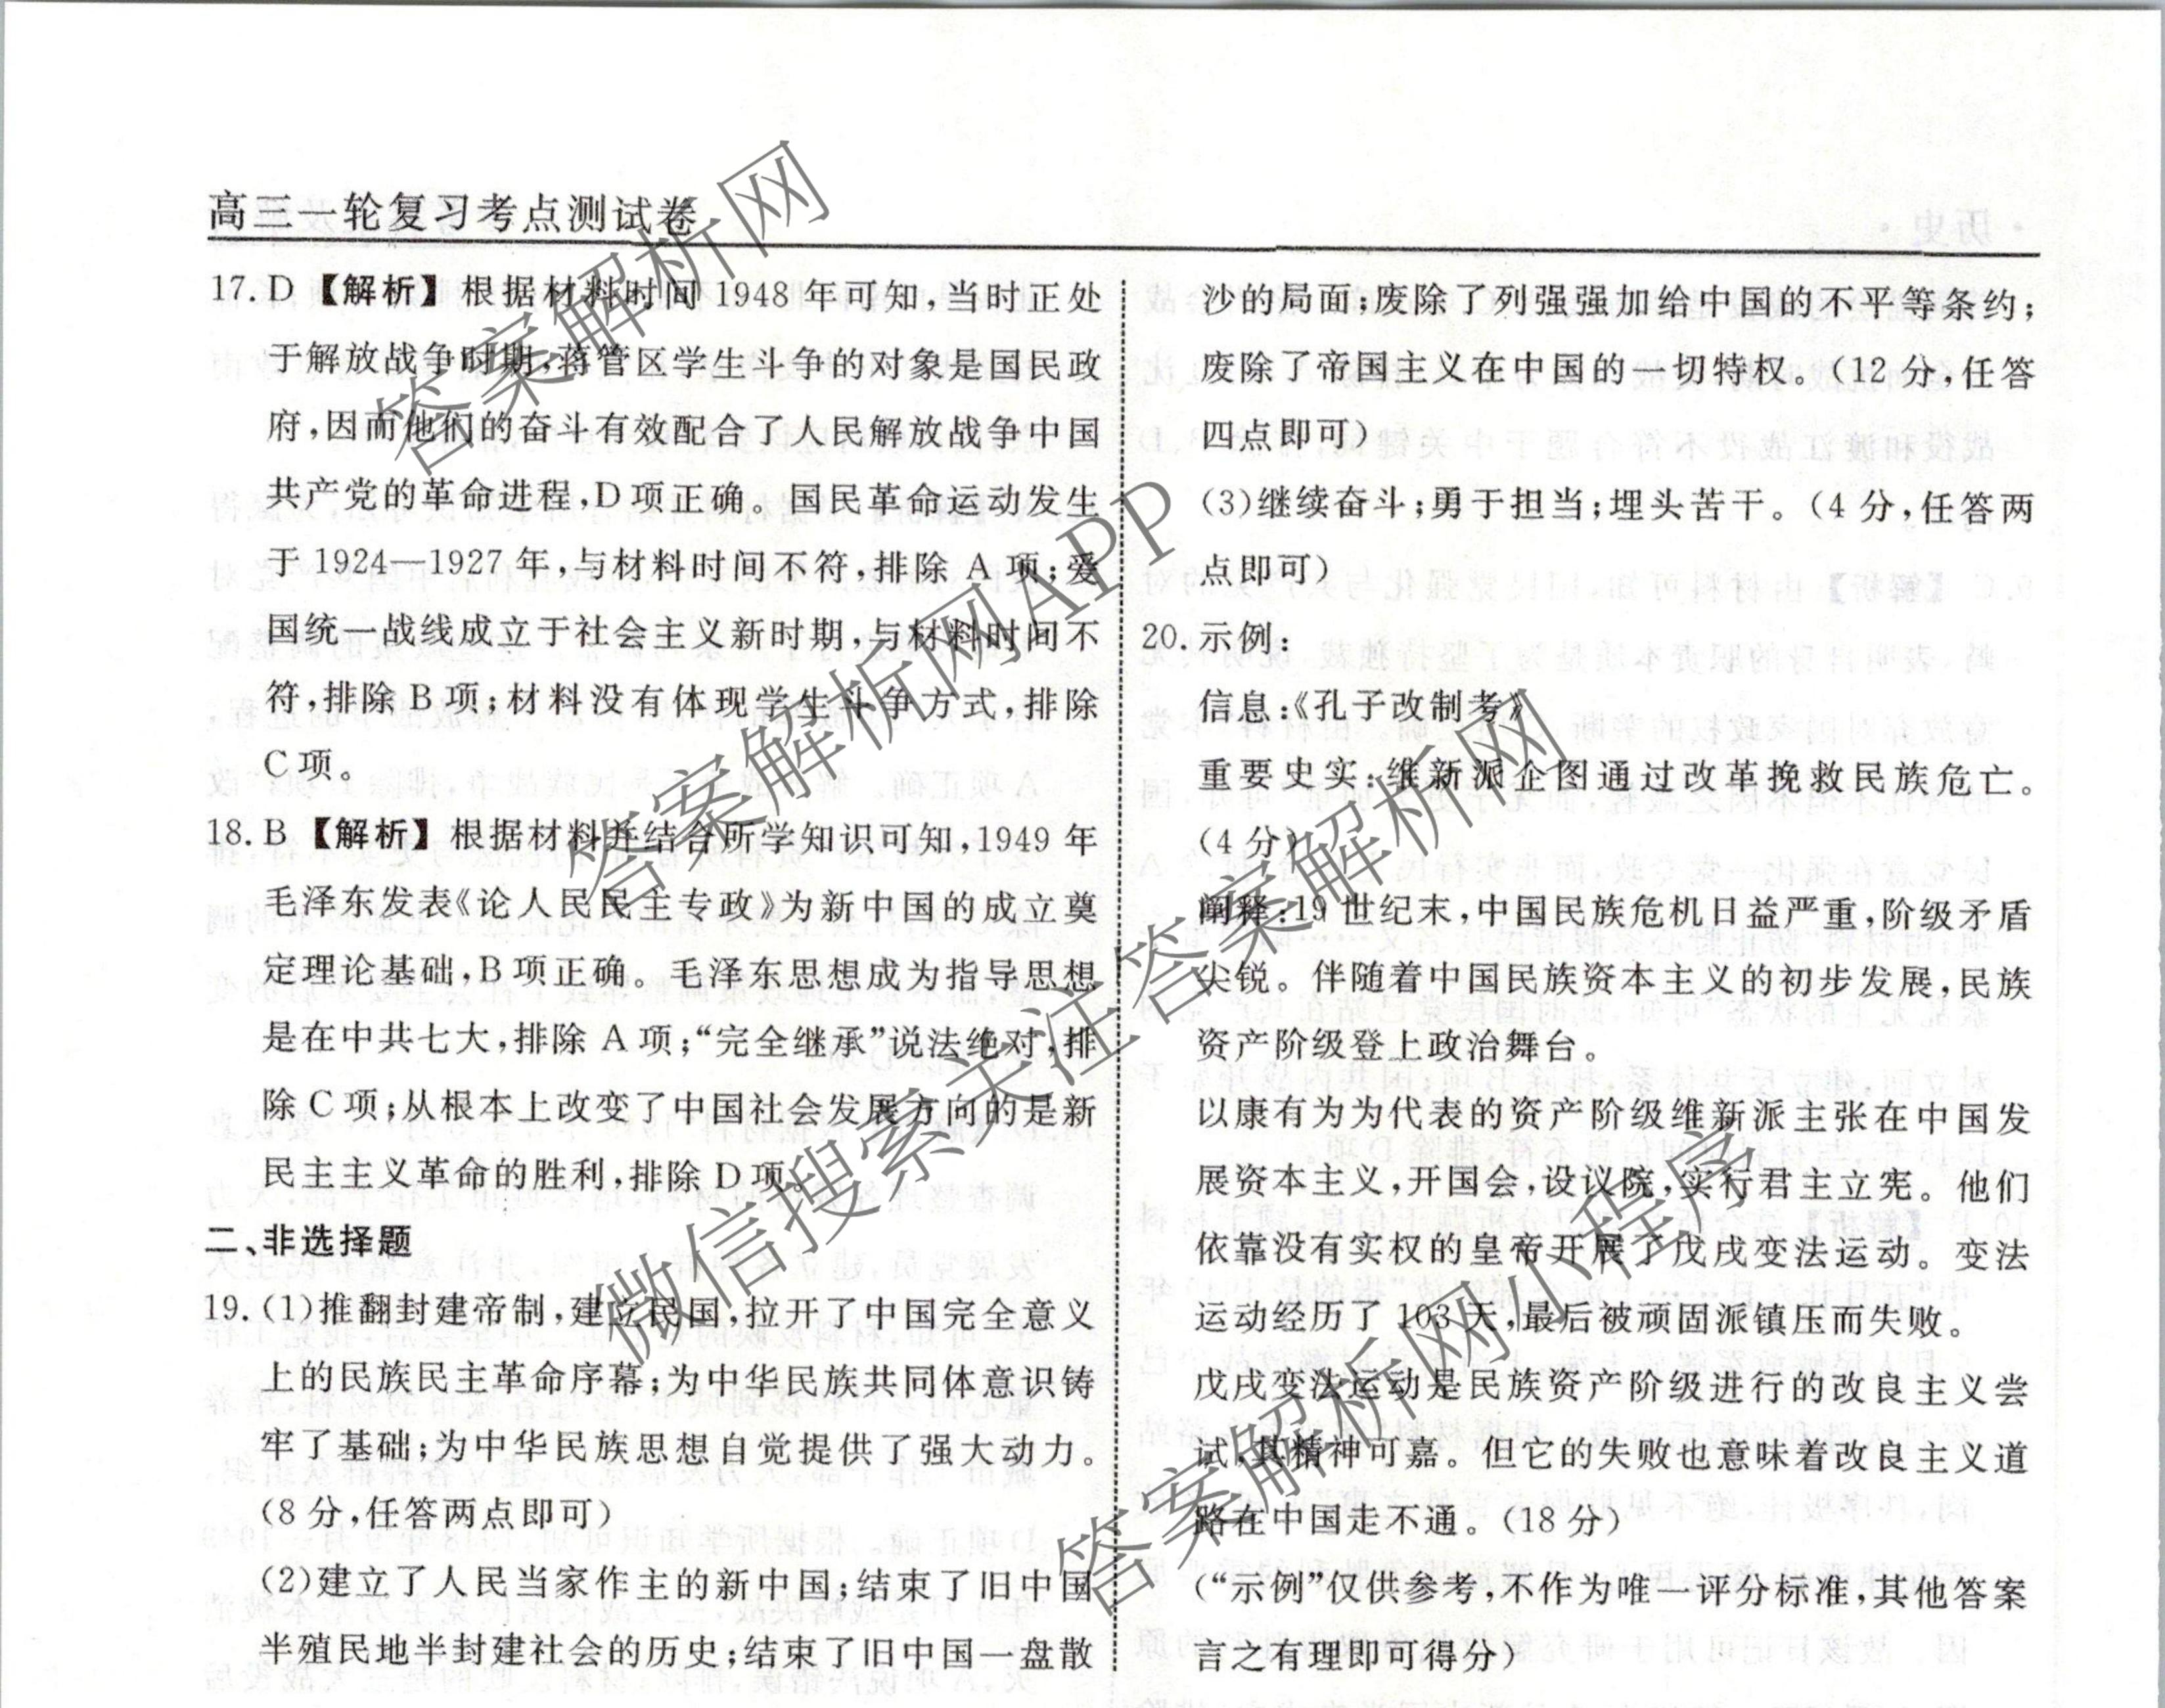 高三一轮复习考点测试卷
17. D【解析】根据材料时间1948年可知,当时正处
于解放战争时期,蒋管区学生斗争的对象是国民政
府,因而他们的奋斗有效配合了人民解放战争中国
共产党的革命进程,D项正确。国民革命运动发生
于1924—1927年,与材料时间不符,排除 A 项;爱
国统一战线成立于社会主义新时期,与材料时间不
符,排除B项;材料没有体现学生斗争方式,排除
C项。
18. B【解析】根据材料并结合所学知识可知,1949年
毛泽东发表《论人民民主专政》为新中国的成立奠
定理论基础,B项正确。毛泽东思想成为指导思想
是在中共七大,排除 A 项;“完全继承”说法绝对,排
除C项;从根本上改变了中国社会发展方向的是新
民主主义革命的胜利,排除D项。
二、非选择题
19. (1)推翻封建帝制,建立民国,拉开了中国完全意义
上的民族民主革命序幕;为中华民族共同体意识铸
牢了基础;为中华民族思想自觉提供了强大动力。
(8分,任答两点即可)
(2)建立了人民当家作主的新中国;结束了旧中国
半殖民地半封建社会的历史;结束了旧中国一盘散
沙的局面;废除了列强强加给中国的不平等条约;
废除了帝国主义在中国的一切特权。(12分,任答
四点即可)
(3)继续奋斗;勇于担当;埋头苦干。(4分,任答两
点即可)
20. 示例:
信息:《孔子改制考》
重要史实:维新派企图通过改革挽救民族危亡。
(4分)
阐释:19世纪末,中国民族危机日益严重,阶级矛盾
尖锐。伴随着中国民族资本主义的初步发展,民族
资产阶级登上政治舞台。
以康有为为代表的资产阶级维新派主张在中国发
展资本主义,开国会,设议院,实行君主立宪。他们
依靠没有实权的皇帝开展了戊戌变法运动。变法
运动经历了103天,最后被顽固派镇压而失败。
戊戌变法运动是民族资产阶级进行的改良主义尝
试,其精神可嘉。但它的失败也意味着改良主义道
路在中国走不通。(18分)
(“示例”仅供参考,不作为唯一评分标准,其他答案
言之有理即可得分)
答案解析网
答案解析网APP
微信搜索关注答案解析网
答案解析网小程序
·历史·